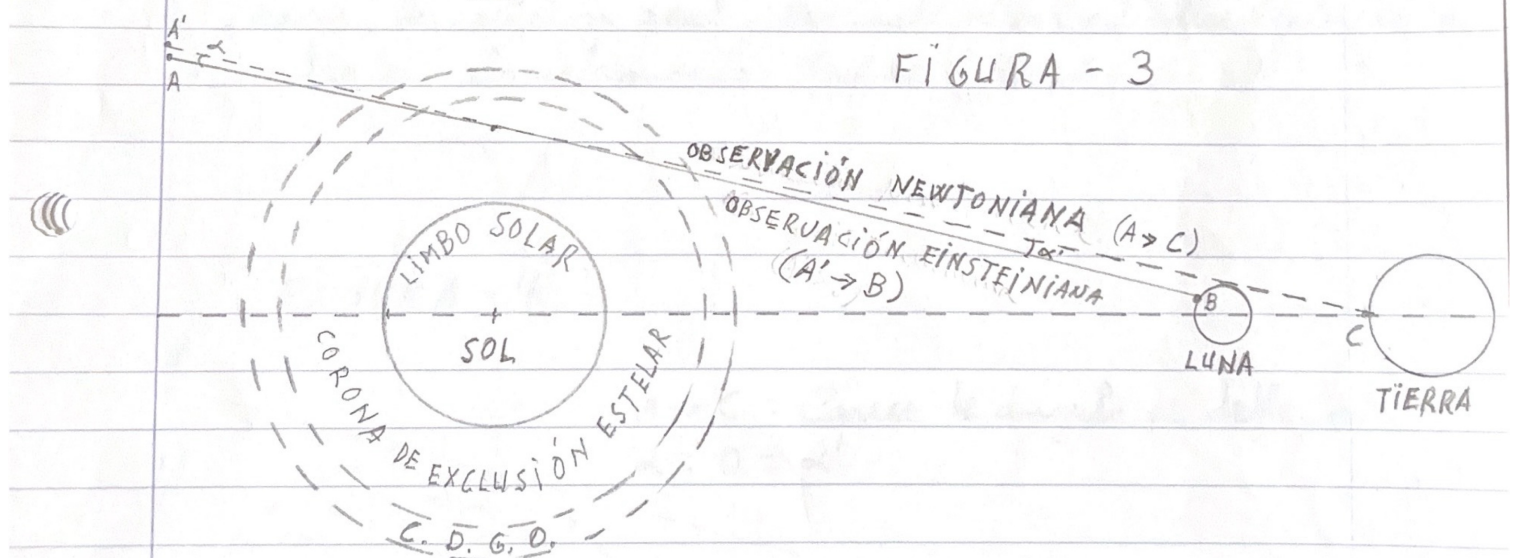 FİGURA - 3
A'
α
A
OBSERVACIÓN NEWTONİANA (A→C)
OBSERVACIÓN EİNSTEİNİANA
(A'→B)
α'
LİMBO SOLAR
SOL
CORONA DE EXCLUSİÓN ESTELAR
C. D. G. O.
B
LUNA
C
TİERRA